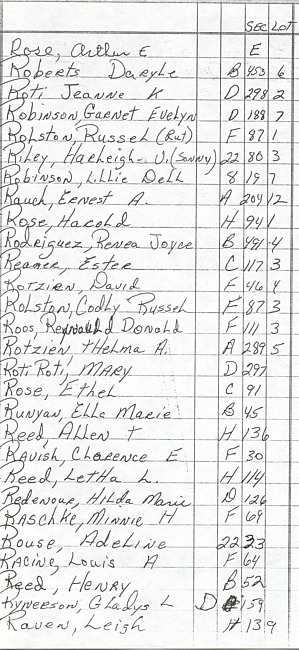 SEC LOT
Rose, Arthur E E
Roberts Daryle B 453 6
Roti Jeanne K D 298 2
Robinson, Garnet Evelyn D 188 7
Rolston, Russel (Rut) F 87 1
Riley, Harleigh V. (Sonny) 22 80 3
Robinson, Lillie Dell 8 19 7
Rauch, Ernest A. A 204 12
Rose, Harold H 94 1
Rodriguez, Renea Joyce B 491 4
Reamer, Ester C 117 3
Rotzien, David F 46 4
Rolston, Codly Russel F 87 3
Roos, Donald F 111 3
Rotzien, Thelma A. A 289 5
Roti Roti, Mary D 297
Rose, Ethel C 91
Runyan, Ella Marie B 45
Reed, Allen T H 136
Ravish, Clarence E F 30
Reed, Letha L. H 114
Redenour, Hilda Marie D 126
Raschke, Minnie H F 69
Rouse, Adeline 22 23
Racine, Louis A F 64
Reed, Henry B 52
Rynerson, Gladys L D 159
Raven, Leigh H 139